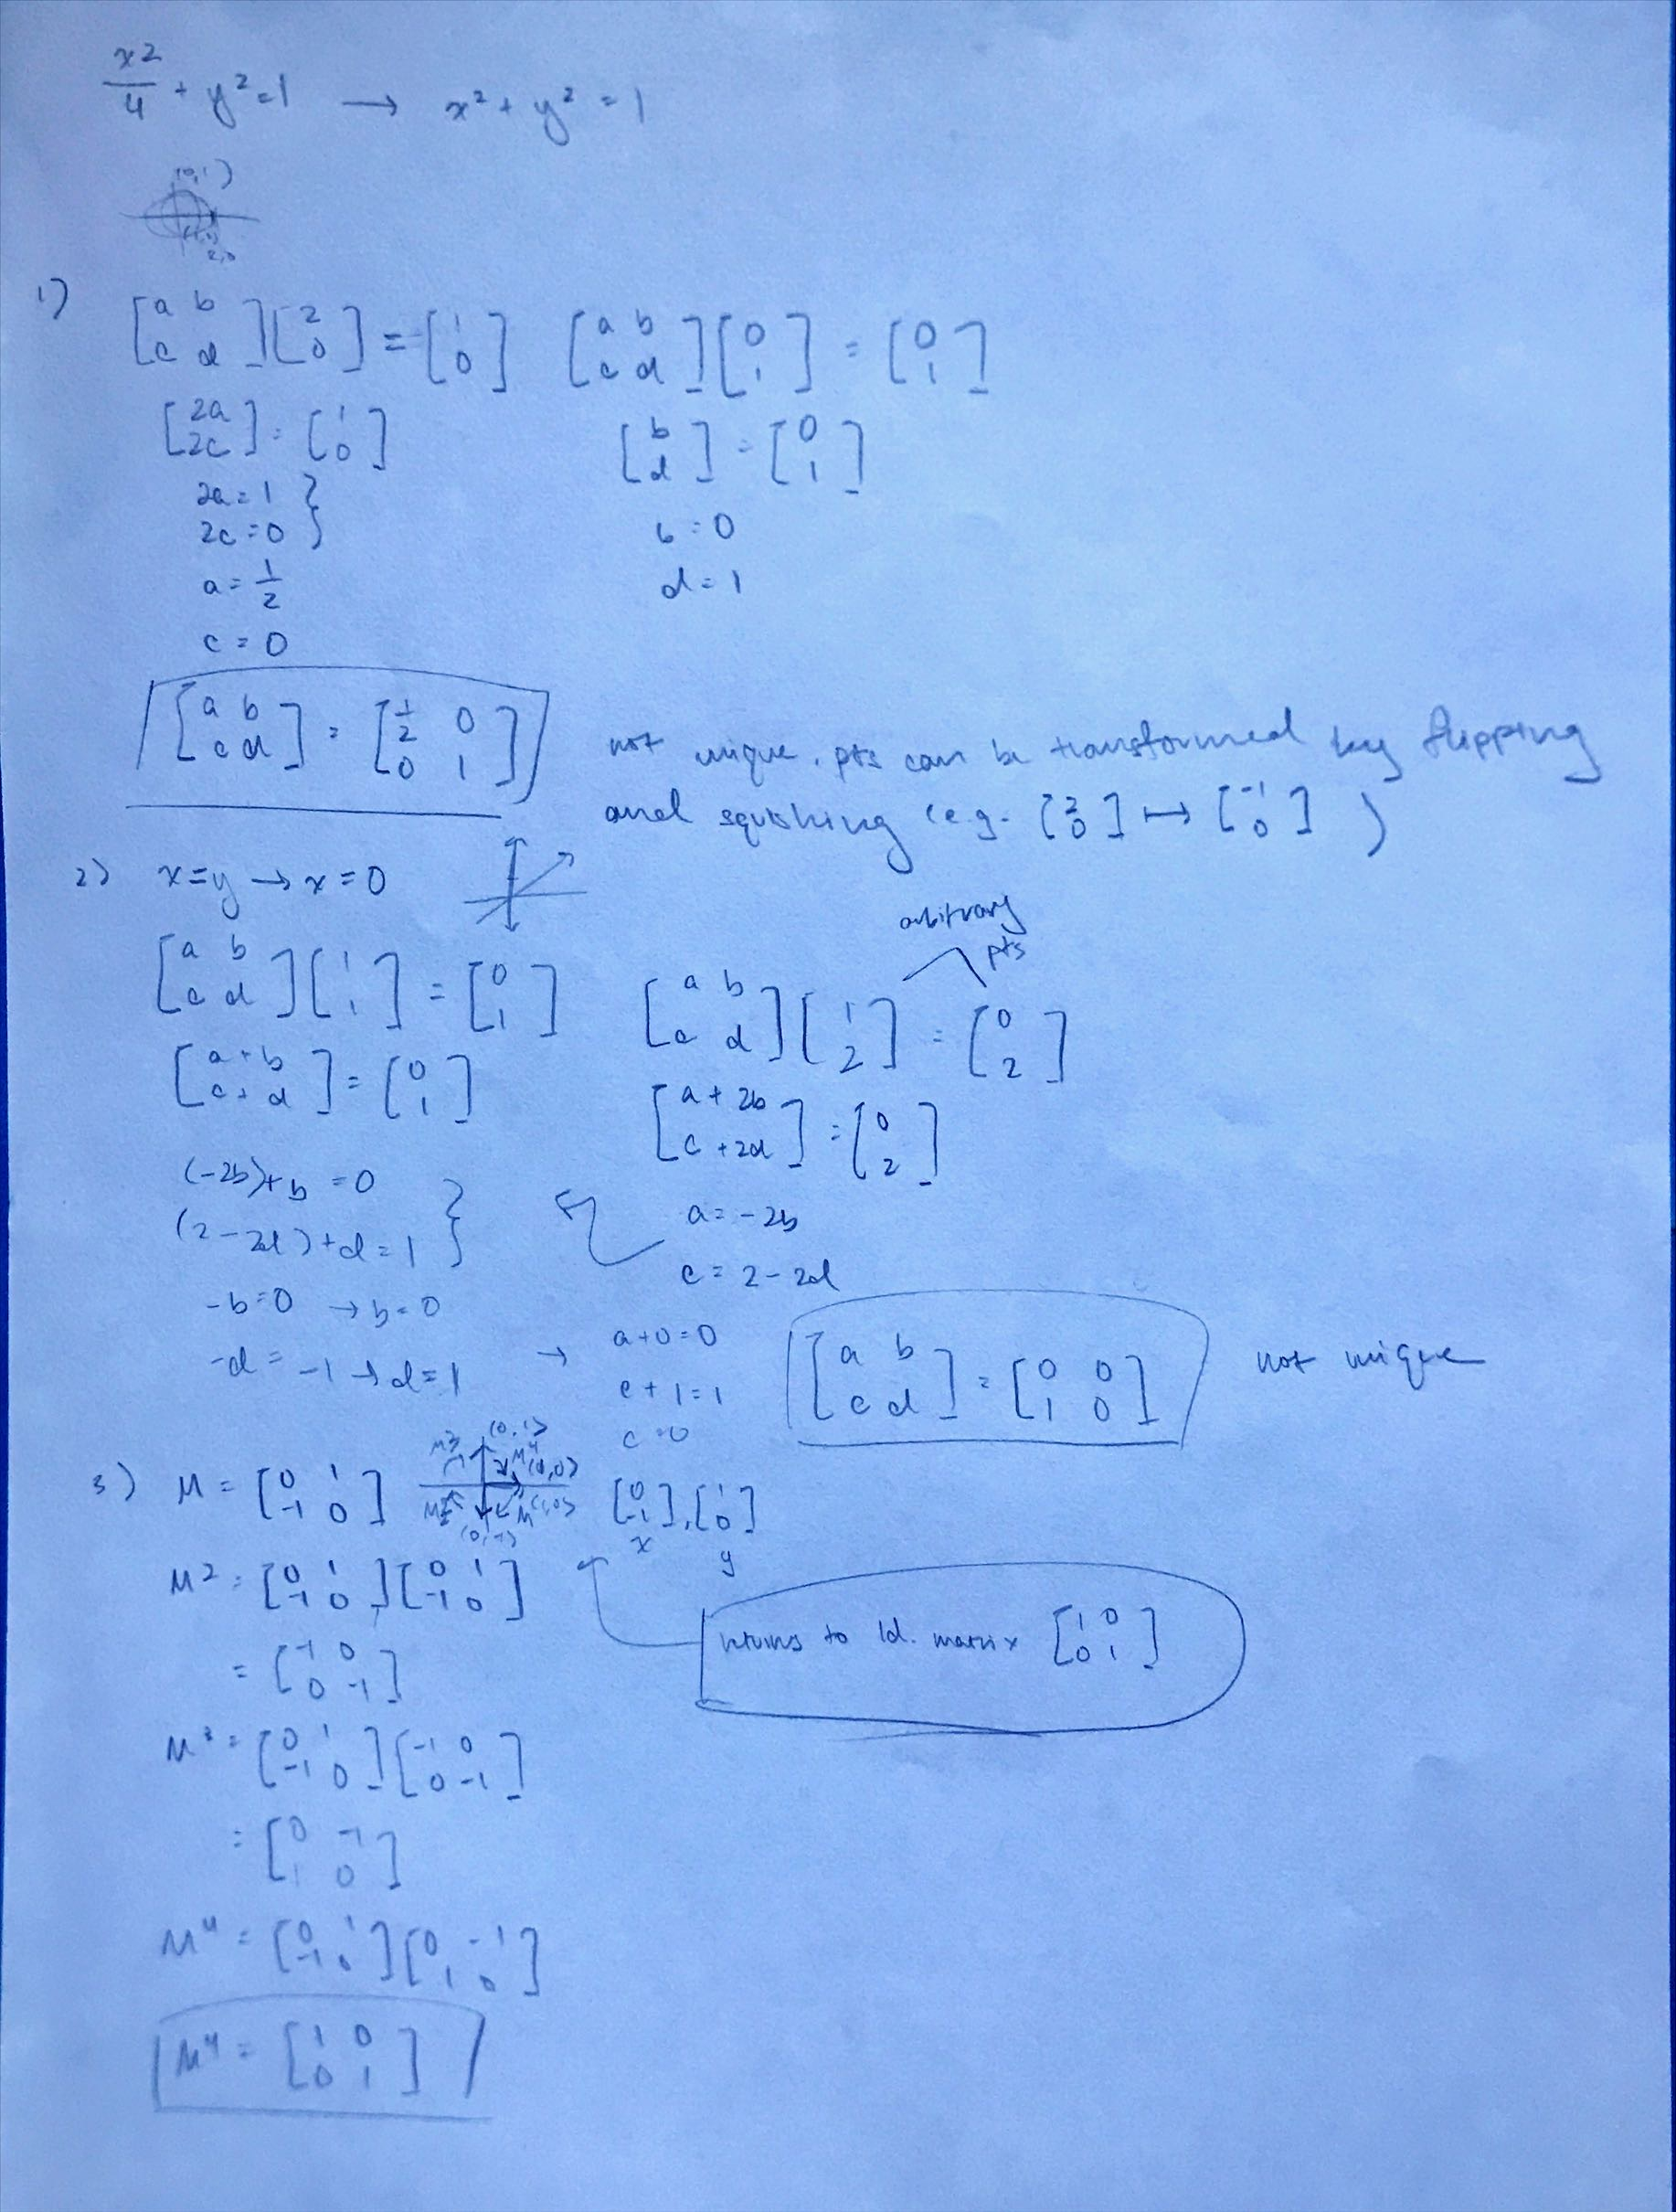 x2/4 + y² = 1 → x² + y² = 1
(0,1)
2,0
1) [a b; c d][2; 0] = [1; 0]   [a b; c d][0; 1] = [0; 1]
[2a; 2c] = [1; 0]   [b; d] = [0; 1]
2a = 1 }
2c = 0 }   b = 0
a = 1/2   d = 1
c = 0
[a b; c d] = [1/2 0; 0 1]   not unique. pts can be transformed by flipping
and squishing (e.g. [2; 0] ↦ [-1; 0] )
2) x=y → x=0
arbitrary
pts
[a b; c d][1; 1] = [0; 1]   [a b; c d][1; 2] = [0; 2]
[a+b; c+d] = [0; 1]   [a+2b; c+2d] = [0; 2]
(-2b)+b = 0
(2-2d)+d = 1 }   a = -2b
c = 2-2d
-b=0 → b=0
-d = -1 → d=1 → a+0=0
c+1=1
c=0
[a b; c d] = [0 0; 1 0]   not unique
3) M = [0 1; -1 0]   [0; -1], [1; 0]
x y
M³ (0,1) M⁴ (1,0)
M² (0,-1) M
M² = [0 1; -1 0][0 1; -1 0]
= [-1 0; 0 -1]
returns to Id. matrix [1 0; 0 1]
M³ = [0 1; -1 0][-1 0; 0 -1]
= [0 -1; 1 0]
M⁴ = [0 1; -1 0][0 -1; 1 0]
M⁴ = [1 0; 0 1]